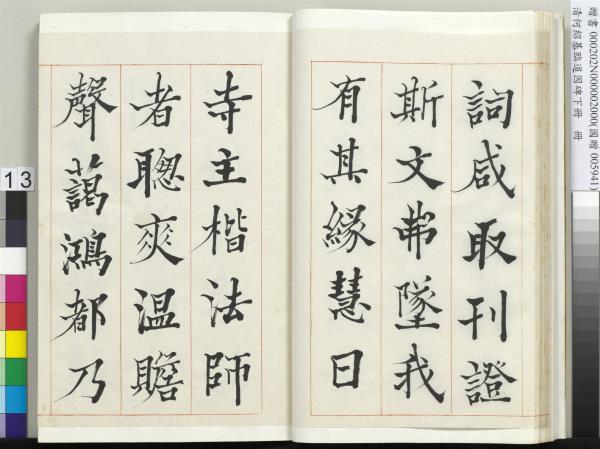 詞咸取刊證
斯文弗墜我
有其緣慧日
寺主楷法師
者聰爽溫贍
聲藹鴻都乃
贈書 000202N000002000(國贈 005941)
清何紹基臨道因碑下冊 冊
13